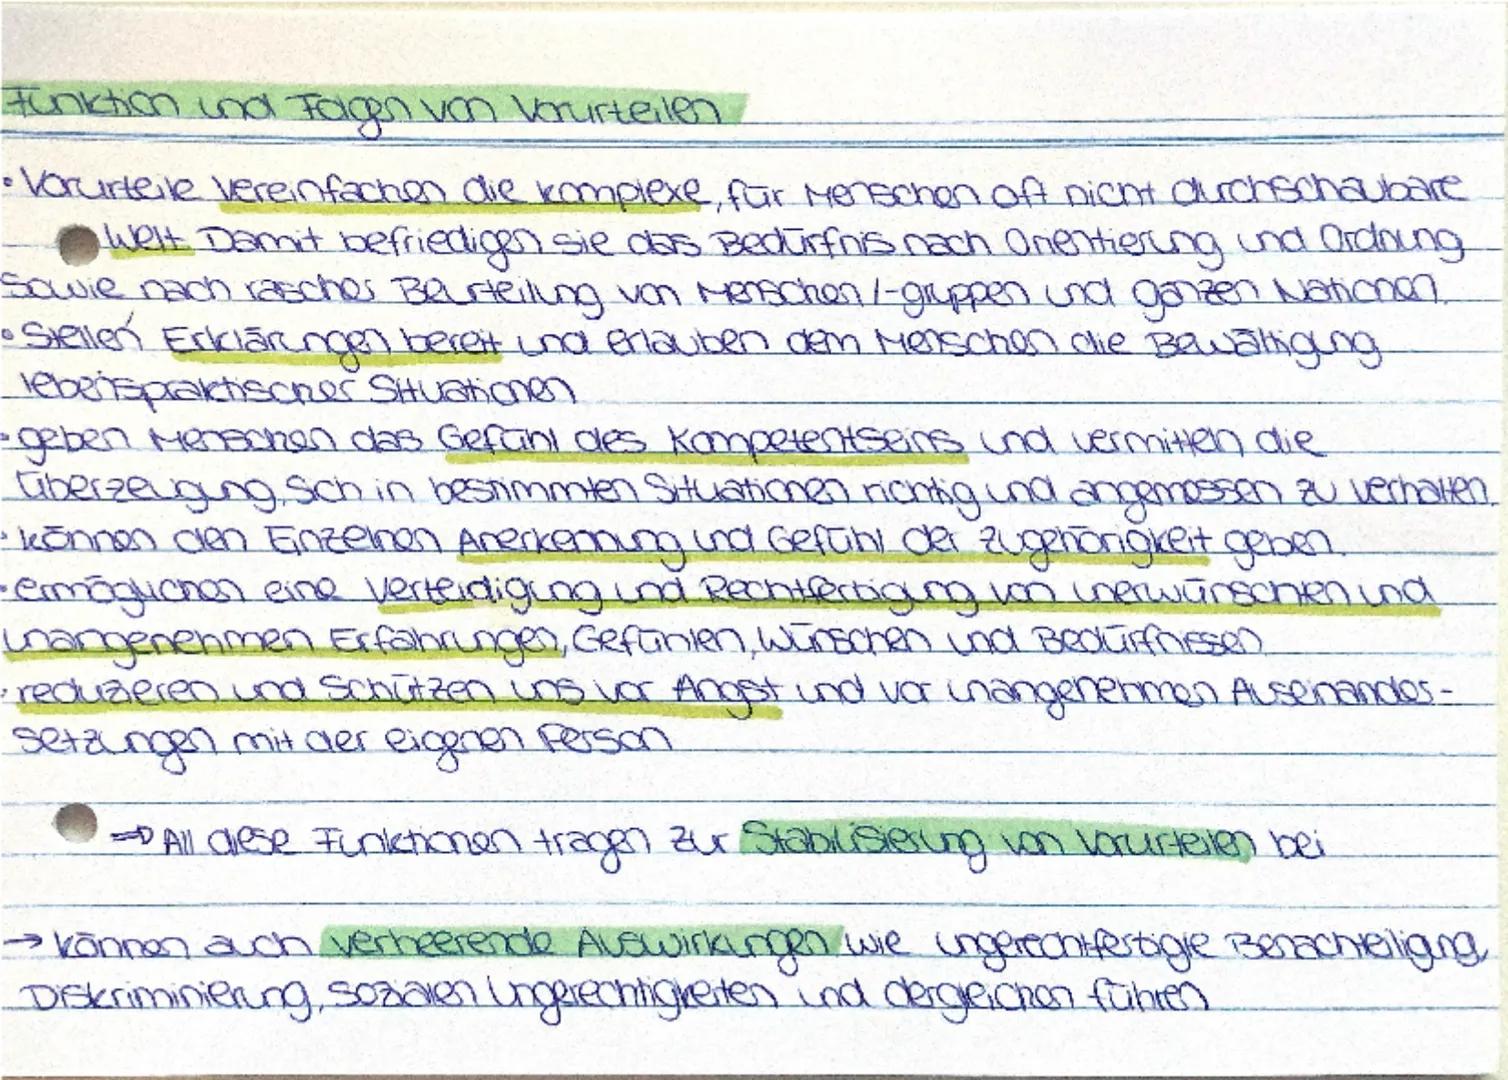 Funktion und Folgen von Vorurteilen
• Vorurteile vereinfachen die komplexe, für Menschen oft nicht durchschaubare
Welt. Damit befriedigen sie das Bedürfnis nach Orientierung und Ordnung
sowie nach rascher Beurteilung von Menschen/-gruppen und ganzen Nationen.
• Stellen Erklärungen bereit und erlauben dem Menschen die Bewältigung
lebenspraktischer Situationen
• geben Menschen das Gefühl des Kompetentseins und vermitteln die
Überzeugung, sich in bestimmten Situationen richtig und angemessen zu verhalten.
• können den Einzelnen Anerkennung und Gefühl der Zugehörigkeit geben.
• ermöglichen eine Verteidigung und Rechtfertigung von unerwünschten und
unangenehmen Erfahrungen, Gefühlen, Wünschen und Bedürfnissen
• reduzieren und schützen uns vor Angst und vor unangenehmen Auseinander-
setzungen mit der eigenen Person
⇒ All diese Funktionen tragen zur Stabilisierung von Vorurteilen bei
→ können auch verheerende Auswirkungen wie ungerechtfertigte Benachteiligung,
Diskriminierung, sozialen Ungerechtigkeiten und dergleichen führen